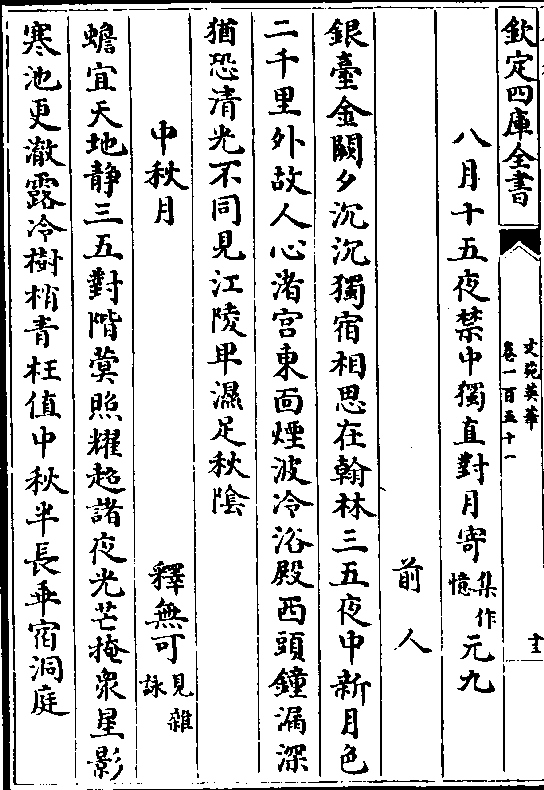 欽定四庫全書
文苑英華
卷一百五十一
八月十五夜禁中獨直對月寄集作憶元九
前人
銀臺金闕夕沉沉獨宿相思在翰林三五夜中新月色
二千里外故人心渚宫東面煙波冷浴殿西頭鐘漏深
猶恐清光不同見江陵卑濕足秋隂
中秋月 釋無可見雜詠
蟾宜天地静三五對階蓂照耀超諸夜光芒掩衆星影
寒池更澈露冷樹梢青枉值中秋半長乖宿洞庭